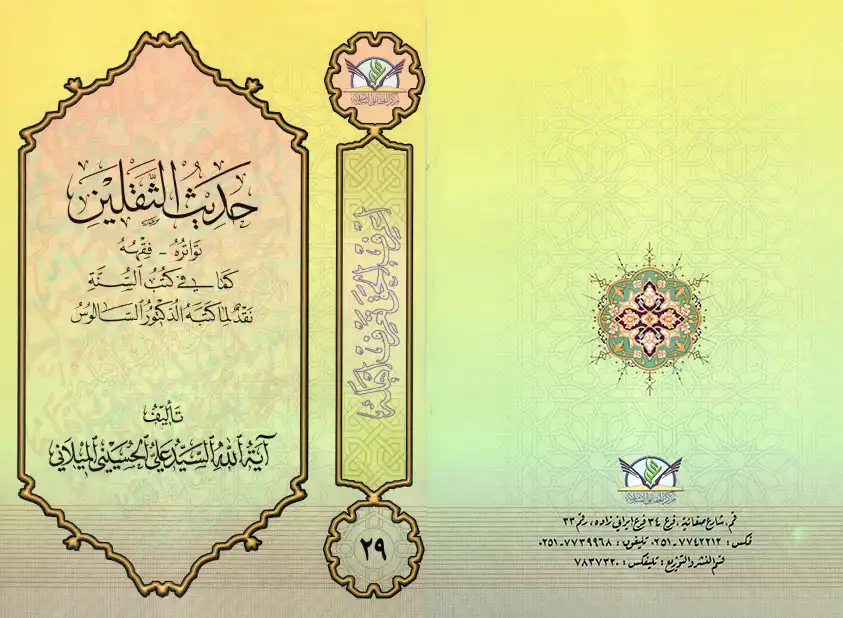 حَديثُ الثَّقَلَيْنِ
تَوَاتُرُهُ - فِقْهُهُ
كَمَا فِي كُتُبِ السُّنَّةِ
نَقْدٌ لِمَا كَتَبَهُ الدُّكتُورُ السَّالُوسُ
تَألِيفُ
آيَةُ اللهِ السَّيِّد عَلِيّ الحُسَيْنِي المِيلَانِي
مركز الحقائق الإسلامية
اعرف الحق تعرف أهله
٢٩
مركز الحقائق الإسلامية
قم، شارع صفائية، فرع ٣٤ فرع ايراني زاده، رقم ٣٣
فكس: ٧٧٤٢٢١٢-٠٢٥١ تليفون: ٧٧٣٩٩٦٨-٠٢٥١
قسم النشر والتوزيع: تليفكس: ٧٨٣٧٣٢٠